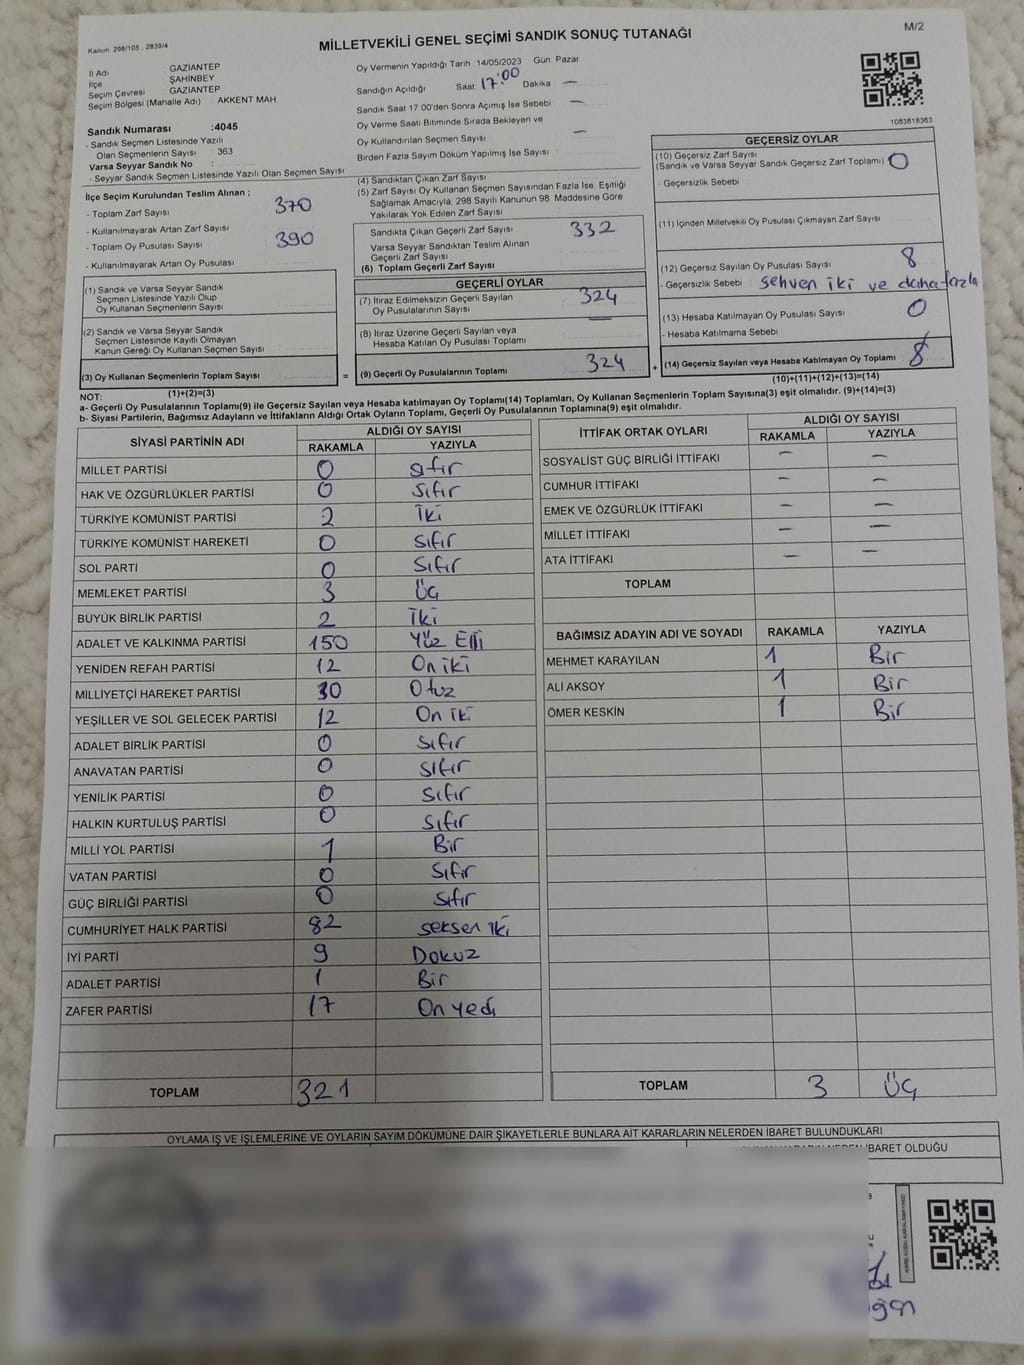 Kanun: 298/105 , 2839/4
MİLLETVEKİLİ GENEL SEÇİMİ SANDIK SONUÇ TUTANAĞI
M/2
İl Adı GAZİANTEP
İlçe ŞAHİNBEY
Seçim Çevresi GAZİANTEP
Seçim Bölgesi (Mahalle Adı) : AKKENT MAH
Sandık Numarası :4045
- Sandık Seçmen Listesinde Yazılı
Olan Seçmenlerin Sayısı 363
Varsa Seyyar Sandık No :
- Seyyar Sandık Seçmen Listesinde Yazılı Olan Seçmen Sayısı
Oy Vermenin Yapıldığı Tarih :14/05/2023 Gün Pazar
Sandığın Açıldığı Saat 17:00 Dakika —
Sandık Saat 17.00'den Sonra Açımış İse Sebebi —
Oy Verme Saati Bitiminde Sırada Bekleyen ve
Oy Kullandırılan Seçmen Sayısı —
Birden Fazla Sayım Döküm Yapılmış İse Sayısı
1083818363
İlçe Seçim Kurulundan Teslim Alınan ;
- Toplam Zarf Sayısı 370
- Kullanılmayarak Artan Zarf Sayısı
- Toplam Oy Pusulası Sayısı 390
- Kullanılmayarak Artan Oy Pusulası
(1) Sandık ve Varsa Seyyar Sandık
Seçmen Listesinde Yazılı Olup
Oy Kullanan Seçmenlerin Sayısı
(2) Sandık ve Varsa Seyyar Sandık
Seçmen Listesinde Kayıtlı Olmayan
Kanun Gereği Oy Kullanan Seçmen Sayısı
(3) Oy Kullanan Seçmenlerin Toplam Sayısı
(1)+(2)=(3)
(4) Sandıktan Çıkan Zarf Sayısı
(5) Zarf Sayısı Oy Kullanan Seçmen Sayısından Fazla İse, Eşitliği
Sağlamak Amacıyla, 298 Sayılı Kanunun 98. Maddesine Göre
Yakılarak Yok Edilen Zarf Sayısı
Sandıkta Çıkan Geçerli Zarf Sayısı 332
Varsa Seyyar Sandıktan Teslim Alınan
Geçerli Zarf Sayısı
(6) Toplam Geçerli Zarf Sayısı
GEÇERLİ OYLAR
(7) İtiraz Edilmeksizin Geçerli Sayılan
Oy Pusulalarının Sayısı 324
(8) İtiraz Üzerine Geçerli Sayılan veya
Hesaba Katılan Oy Pusulası Toplamı —
= (9) Geçerli Oy Pusulalarının Toplamı 324
GEÇERSİZ OYLAR
(10) Geçersiz Zarf Sayısı
(Sandık ve Varsa Seyyar Sandık Geçersiz Zarf Toplamı) 0
- Geçersizlik Sebebi
(11) İçinden Milletvekili Oy Pusulası Çıkmayan Zarf Sayısı
(12) Geçersiz Sayılan Oy Pusulası Sayısı 8
- Geçersizlik Sebebi sehven iki ve daha fazla
(13) Hesaba Katılmayan Oy Pusulası Sayısı 0
- Hesaba Katılmama Sebebi
+ (14) Geçersiz Sayılan veya Hesaba Katılmayan Oy Toplamı 8
(10)+(11)+(12)+(13)=(14)
NOT:
a- Geçerli Oy Pusulalarının Toplamı(9) ile Geçersiz Sayılan veya Hesaba katılmayan Oy Toplamı(14) Toplamları, Oy Kullanan Seçmenlerin Toplam Sayısına(3) eşit olmalıdır. (9)+(14)=(3)
b- Siyasi Partilerin, Bağımsız Adayların ve İttifakların Aldığı Ortak Oyların Toplamı, Geçerli Oy Pusulalarının Toplamına(9) eşit olmalıdır.
SİYASİ PARTİNİN ADI ALDIĞI OY SAYISI
RAKAMLA YAZIYLA
MİLLET PARTİSİ 0 sıfır
HAK VE ÖZGÜRLÜKLER PARTİSİ 0 Sıfır
TÜRKİYE KOMÜNİST PARTİSİ 2 İki
TÜRKİYE KOMÜNİST HAREKETİ 0 Sıfır
SOL PARTİ 0 Sıfır
MEMLEKET PARTİSİ 3 Üç
BÜYÜK BİRLİK PARTİSİ 2 İki
ADALET VE KALKINMA PARTİSİ 150 Yüz Elli
YENİDEN REFAH PARTİSİ 12 On iki
MİLLİYETÇİ HAREKET PARTİSİ 30 Otuz
YEŞİLLER VE SOL GELECEK PARTİSİ 12 On iki
ADALET BİRLİK PARTİSİ 0 Sıfır
ANAVATAN PARTİSİ 0 sıfır
YENİLİK PARTİSİ 0 Sıfır
HALKIN KURTULUŞ PARTİSİ 0 Sıfır
MİLLİ YOL PARTİSİ 1 Bir
VATAN PARTİSİ 0 Sıfır
GÜÇ BİRLİĞİ PARTİSİ 0 Sıfır
CUMHURİYET HALK PARTİSİ 82 seksen iki
İYİ PARTİ 9 Dokuz
ADALET PARTİSİ 1 Bir
ZAFER PARTİSİ 17 On yedi
TOPLAM 321
İTTİFAK ORTAK OYLARI ALDIĞI OY SAYISI
RAKAMLA YAZIYLA
SOSYALİST GÜÇ BİRLİĞİ İTTİFAKI — —
CUMHUR İTTİFAKI — —
EMEK VE ÖZGÜRLÜK İTTİFAKI — —
MİLLET İTTİFAKI — —
ATA İTTİFAKI — —
TOPLAM
BAĞIMSIZ ADAYIN ADI VE SOYADI RAKAMLA YAZIYLA
MEHMET KARAYILAN 1 Bir
ALİ AKSOY 1 Bir
ÖMER KESKİN 1 Bir
TOPLAM 3 Üç
OYLAMA İŞ VE İŞLEMLERİNE VE OYLARIN SAYIM DÖKÜMÜNE DAİR ŞİKAYETLERLE BUNLARA AİT KARARLARIN NELERDEN İBARET BULUNDUKLARI
İBARET OLDUĞU